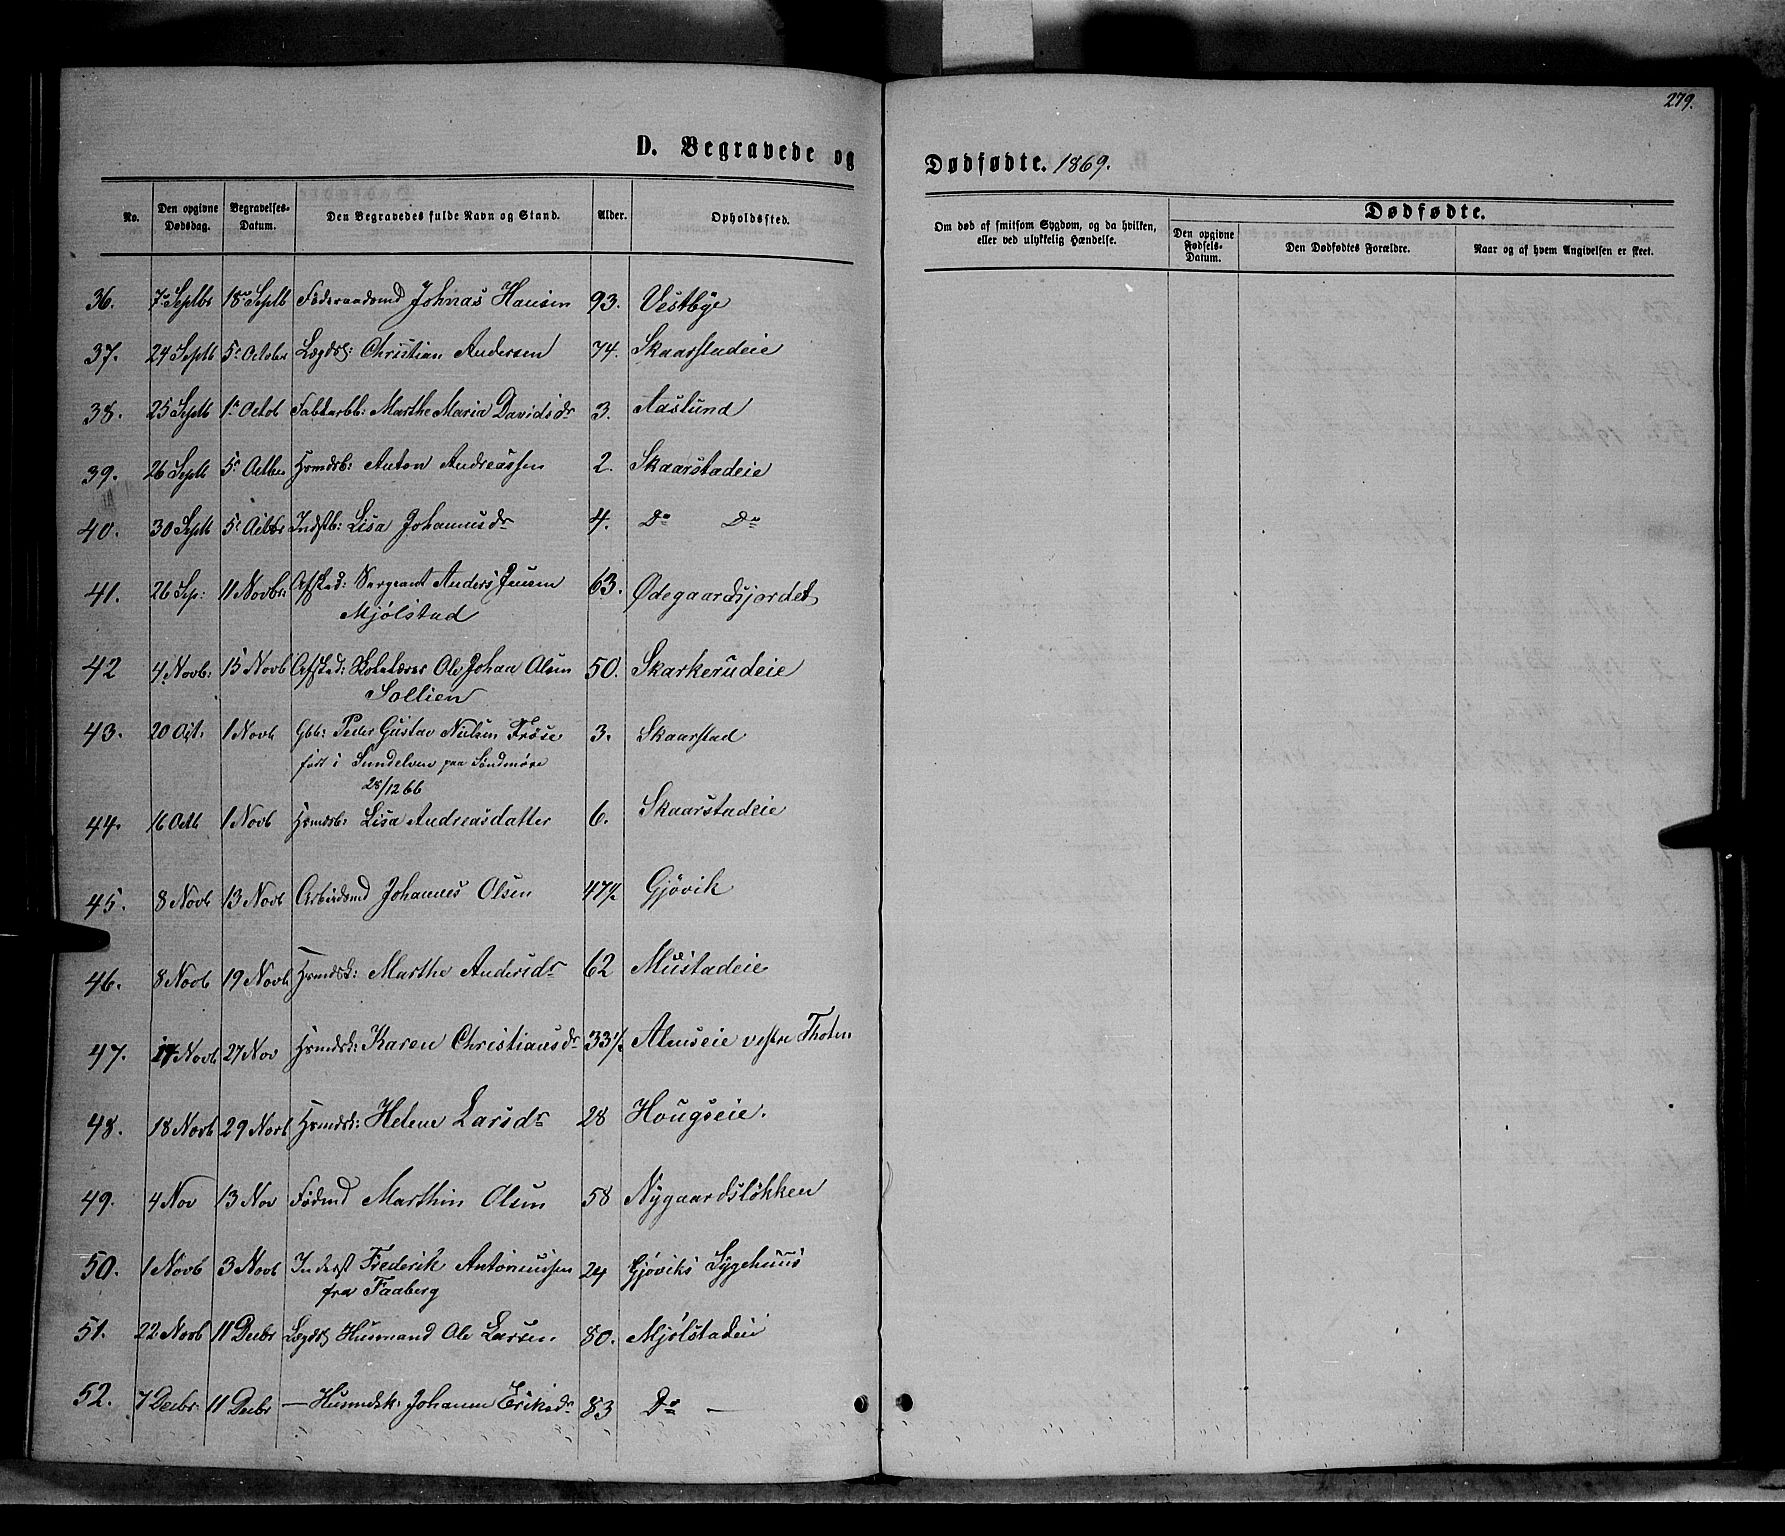 279.
D. Begravede og Dødfødte. 1869.
No. Den opgivne Dødsdag. Begravelses-Datum. Den Begravedes fulde Navn og Stand. Alder. Opholdssted. Om død af smitsom Sygdom, og da hvilken, eller ved ulykkelig Hændelse. Dødfødte. Den opgivne Fødsels-Datum. Den Dødfødtes Forældre. Naar og af hvem Angivelsen er skeet.
36. 7de Septbr 18de Septb Føderaadsmd Johnas Hansen 93. Vestbye
37. 24 Septb 5te Octobr Lægdsl: Christian Andersen 74. Skaarstadeie
38. 25 Septb 1ste Octob Fabkarbb: Marthe Maria Davidsdr 3. Aaslund
39. 26 Septb 5te Octbr Hsmdsb: Anton Andreassen 2. Skaarstadeie
40. 30 Septb 5te Octbr Indstb: Lisa Johannesdr 4. Do Do
41. 26 Sep: 11 Novbr: Afsked: Sergeant Anders Jensen 63. Ødegaardsjordet
Mjølstad
42 4 Novb: 15 Novb Afsked: Skolelærer Ole Johan Olsen 50. Skarkerudeie
Sollien
43. 20 Oct. 1 Novb Gbb: Peder Gustav Nielsen Frøise 3. Skaarstad
født i Sundelven paa Søndmøre
28/12 66
44. 16 Octb 1 Novb Hsmdsb: Lisa Andreasdatter 6. Skaarstadeie
45. 8 Novb 13 Novb Arbeidsmd Johannes Olsen 47½ Gjøvik
46. 8 Novb 19 Novb Hsmdsk: Marthe Andersdr 62 Mustadeie
47. 17 Novb 27 Nov Hsmdsk: Karen Christiansdr 33½ Almseie vestre Thoten
48. 18 Novb 29 Novb Hsmdsk: Helene Larsdr 28 Hougseie.
49. 4 Nov 13 Nov Fødmd Marthin Olsen 58 Nygaardsløkken
50. 1 Novb 3 Novb Inderst Frederik Antoniussen 24 Gjøviks Sygehuus
fra Faaberg
51. 22 Novb 11 Decbr Lægdsl Husmand Ole Larsen 80. Mjølstadeie
52. 7 Decbr 11 Decbr — Husmdsk: Johanne Eriksdr 83 Do —